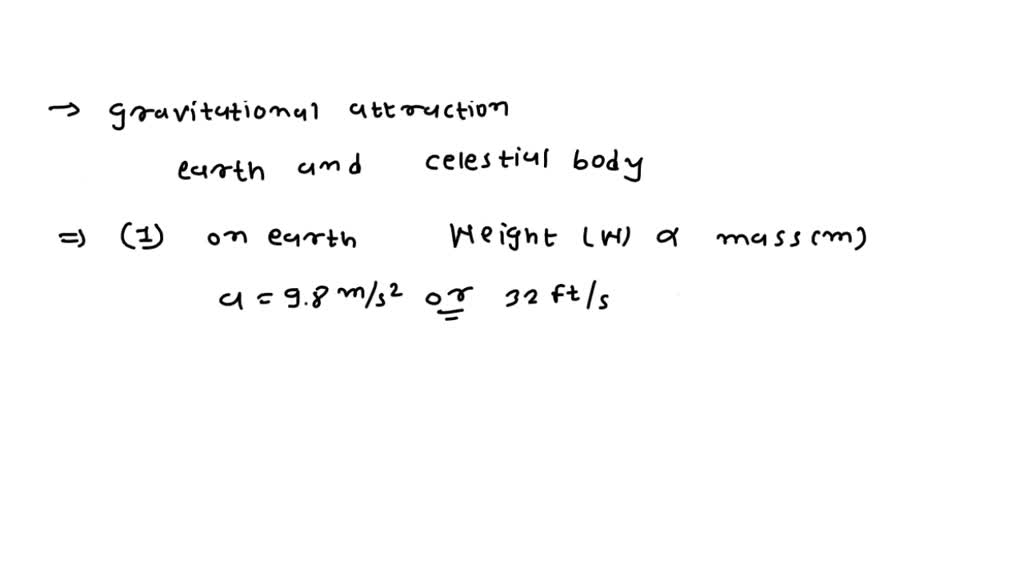 → gravitational attraction
earth and celestial body
⇒ (1) on earth Weight (W) α mass(m)
a = 9.8 m/s² or 32 ft/s